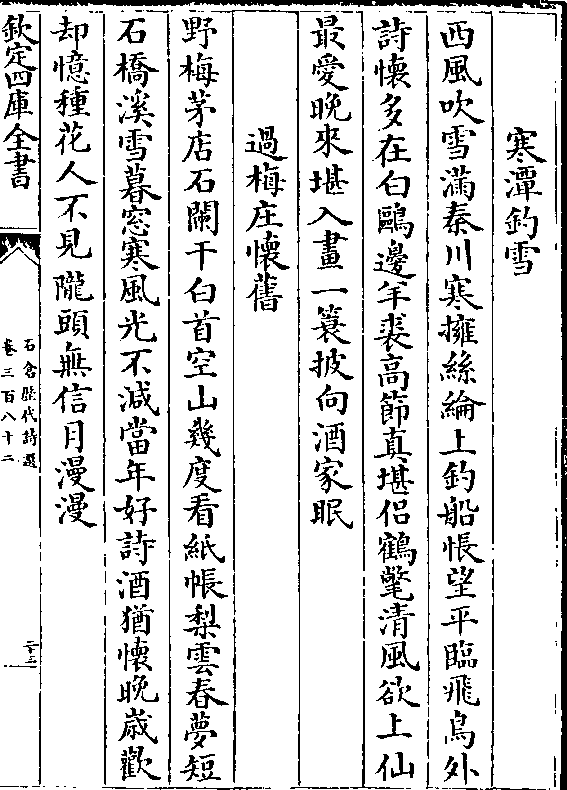 寒潭釣雪
西風吹雪滿秦川寒擁絲綸上釣船悵望平臨飛鳥外
詩懷多在白鷗邊羊裘高節真堪侶鶴氅清風欲上仙
最愛晚來堪入畫一簑披向酒家眠
過梅庄懷舊
野梅茅店石闌干白首空山幾度看紙帳梨雲春夢短
石橋溪雪暮窓寒風光不減當年好詩酒猶懷晚歲歡
却憶種花人不見隴頭無信月漫漫
欽定四庫全書
石倉歷代詩選
卷三百八十二